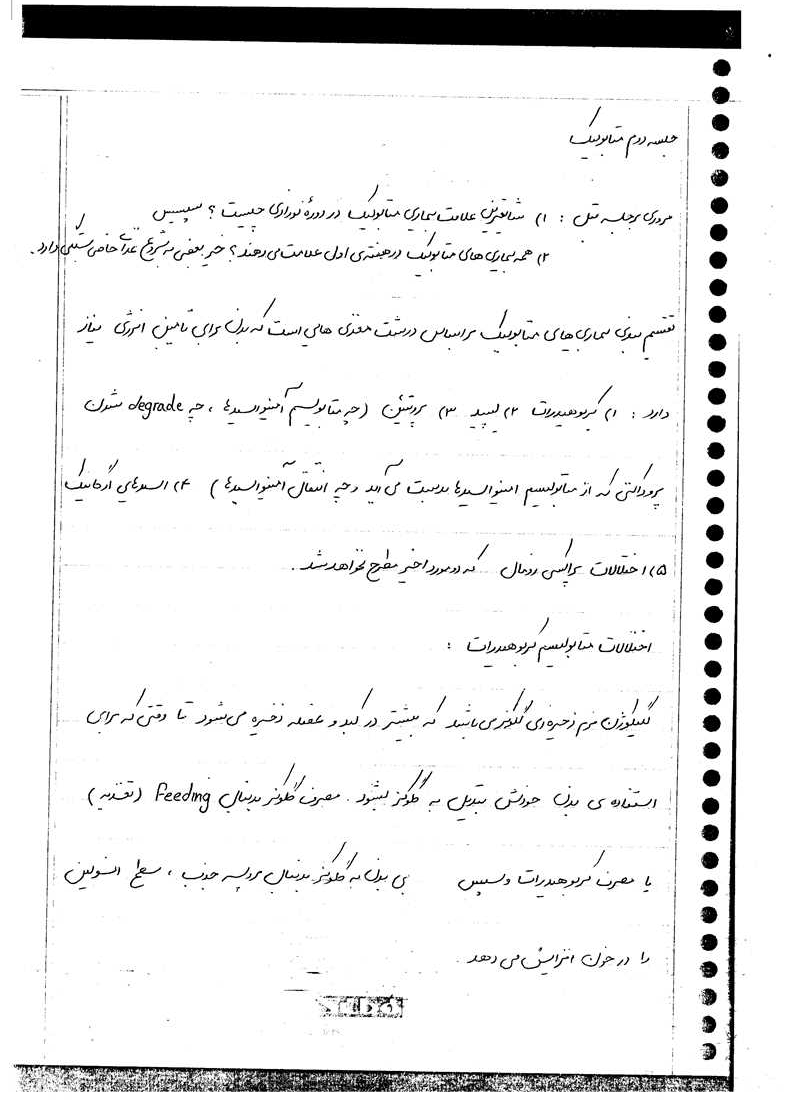 جلسه دوم متابولیک
مروری بر جلسه قبل : ۱) شایعترین علامت بیماری متابولیک در دورهٔ نوزادی چیست ؟ سپسیس
۲) همه بیماری های متابولیک در هفته ی اول علامت می دهند ؟ خیر بعضی به شروع غذای خاصی بستگی دارد .
تقسیم بندی بیماری های متابولیک بر اساس درشت مغذی هایی است که بدن برای تامین انرژی نیاز
دارد : ۱) کربوهیدرات ۲) لیپید ۳) پروتئین (چه متابولیسم آمینواسیدها ، چه degrade شدن
پروداکتی که از متابولیسم امینواسیدها بدست می آید و چه انتقال آمینواسیدها) ۴) اسیدهای ارگانیک
۵) اختلالات پراکسی زومال که دو مورد اخیر مطرح نخواهد شد .
اختلالات متابولیسم کربوهیدرات :
گلیکوژن فرم ذخیره ای گلوکز می باشد که بیشتر در کبد و عضله ذخیره می شود تا وقتی که برای
استفاده ی بدن خودش تبدیل به گلوکز بشود . مصرف گلوکز بدنبال Feeding (تغذیه)
یا مصرف کربوهیدرات و سپس بدن به گلوکز بدنبال پروسه جذب ، سطح انسولین
را در خون افزایش می دهد .